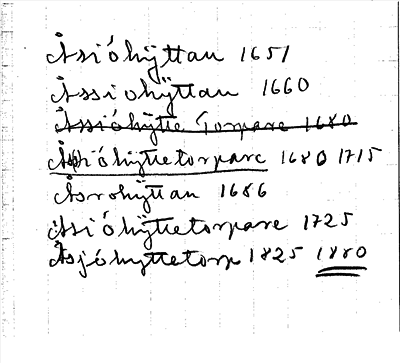 Åsióhÿttan 1651
Åssiohÿttan 1660
Åssióhÿtte Torpare 1680
Åsióhÿttetorpare 1680 1715
Åsrohÿttan 1686
Åssióhÿttetorpare 1725
Åsjóhyttetorp 1825 1880